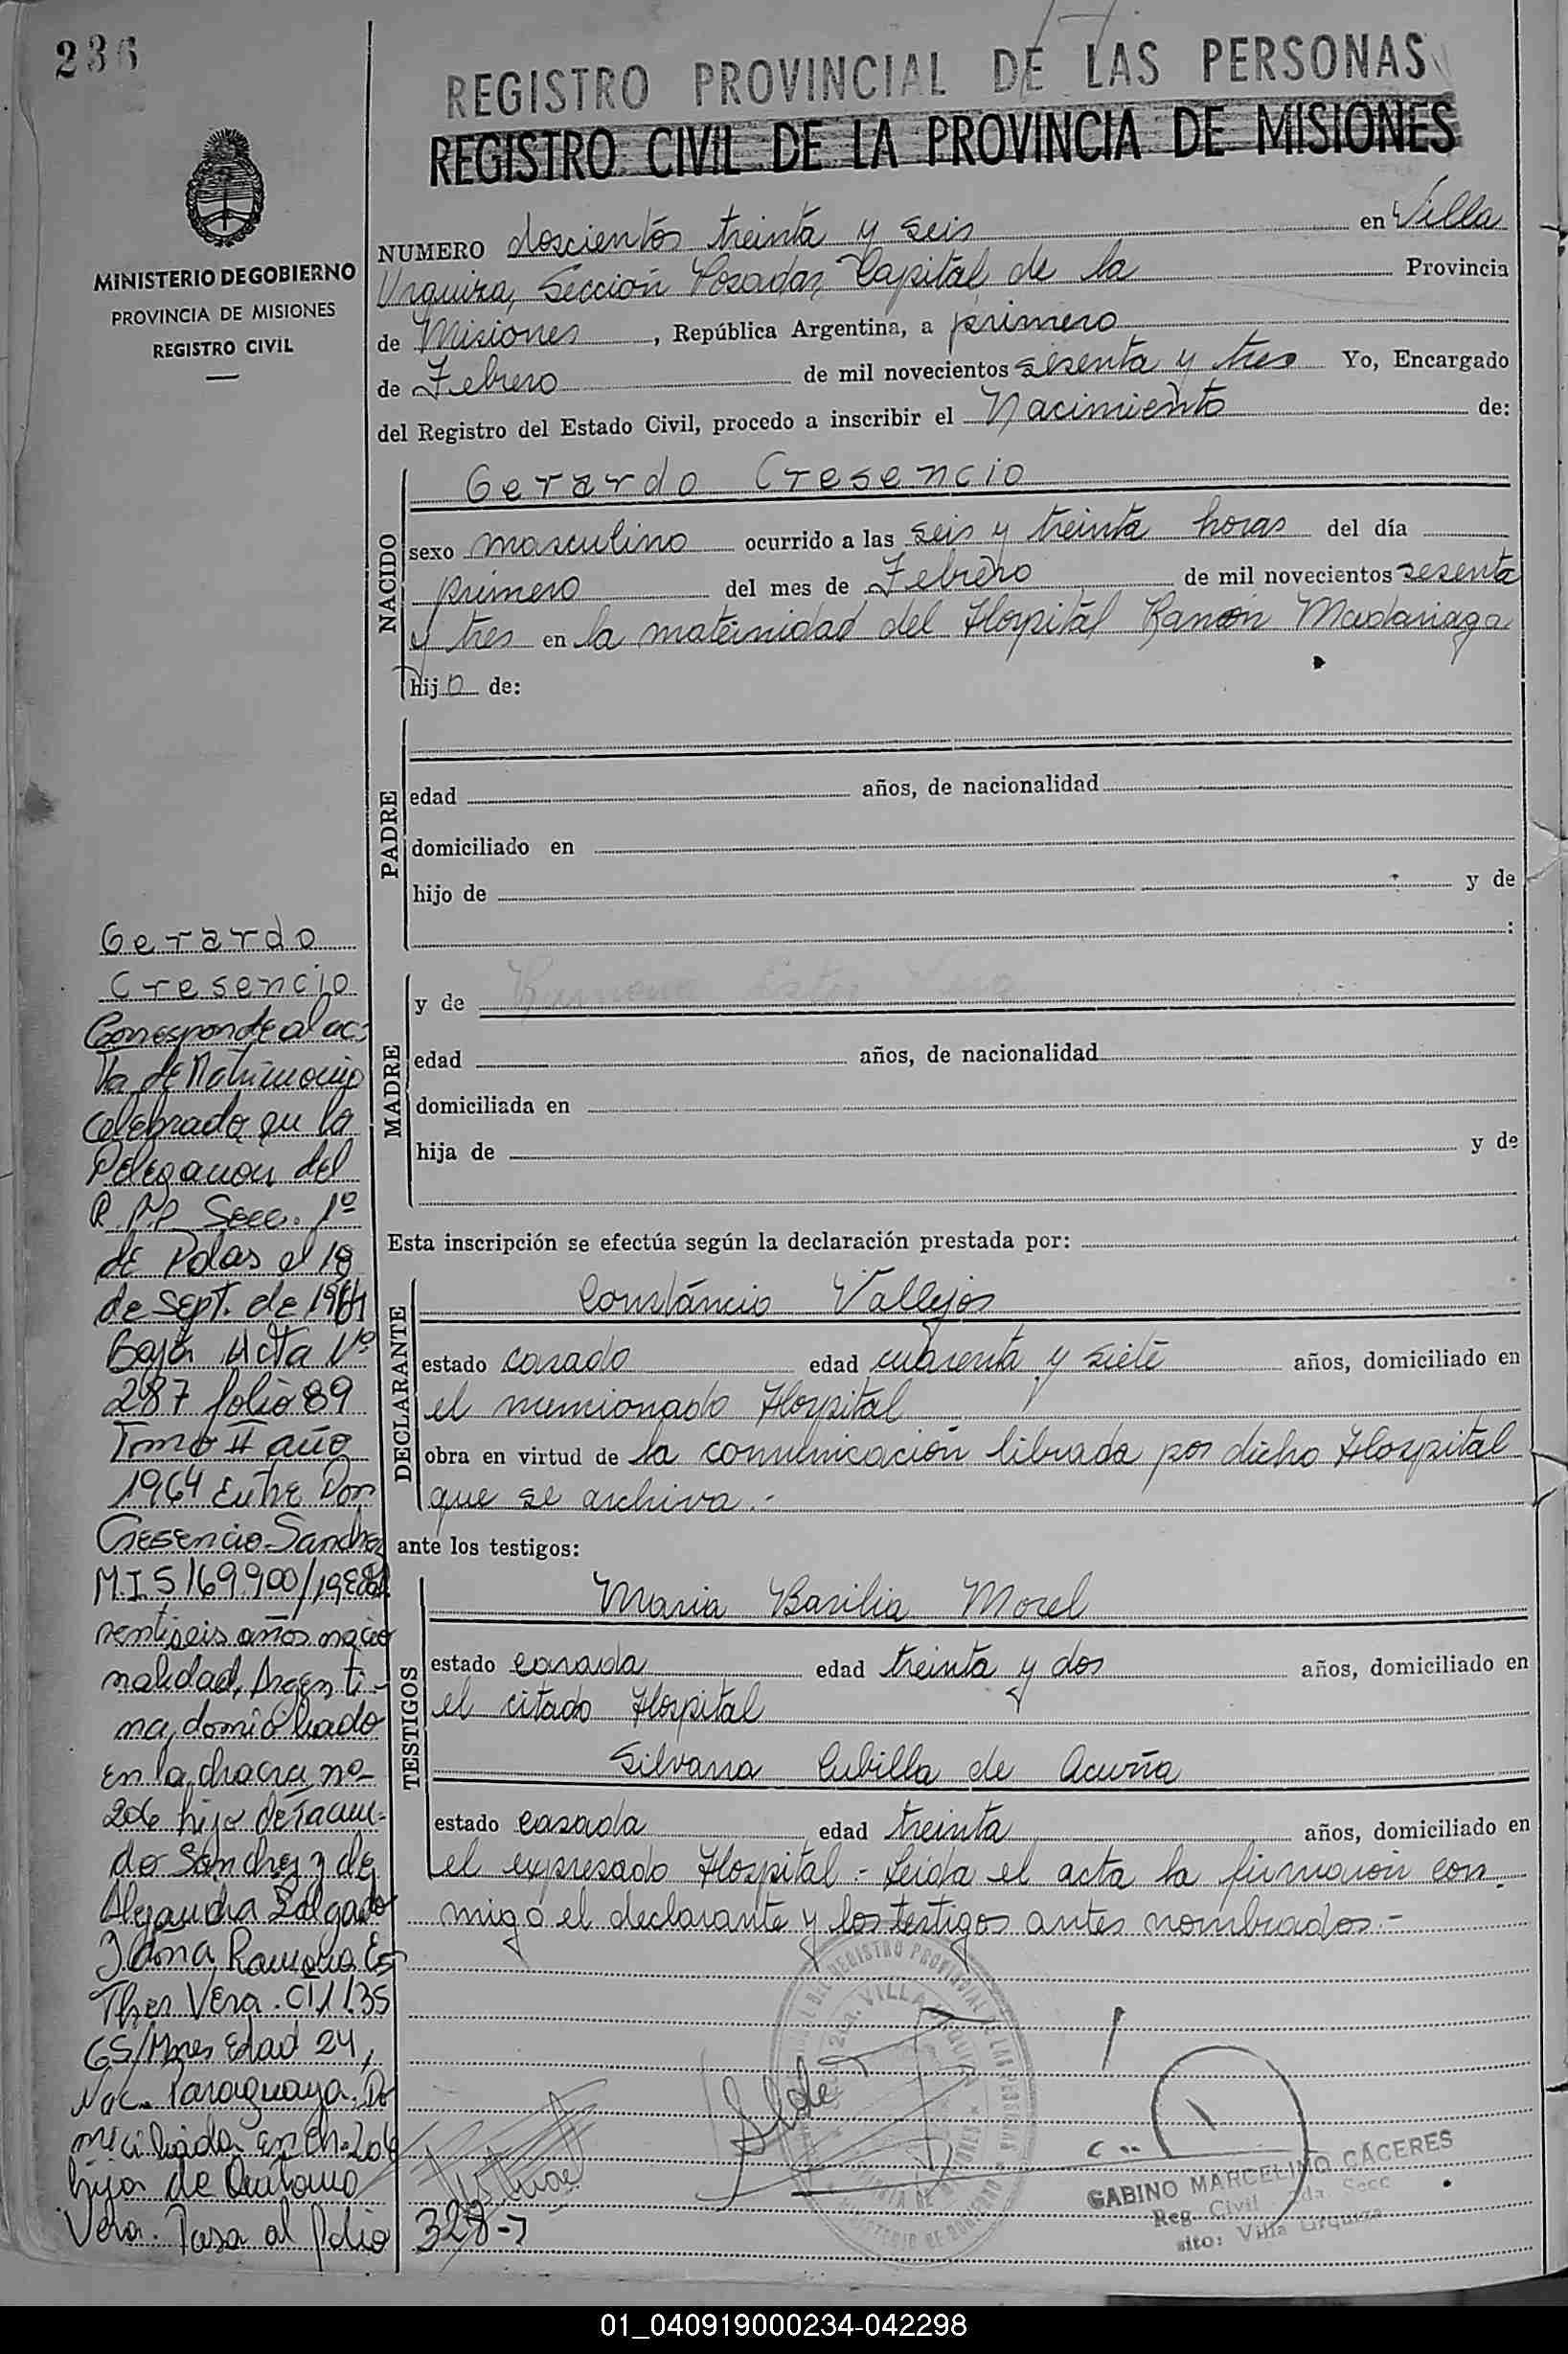 236
REGISTRO PROVINCIAL DE LAS PERSONAS
REGISTRO CIVIL DE LA PROVINCIA DE MISIONES
MINISTERIO DE GOBIERNO
PROVINCIA DE MISIONES
REGISTRO CIVIL
NUMERO doscientos treinta y seis en Villa
Urquiza, Sección Posadas Capital de la Provincia
de Misiones, República Argentina, a primero
de Febrero de mil novecientos sesenta y tres Yo, Encargado
del Registro del Estado Civil, procedo a inscribir el Nacimiento de:
NACIDO
Gerardo Cresencio
sexo masculino ocurrido a las seis y treinta horas del día
primero del mes de Febrero de mil novecientos sesenta
y tres en la maternidad del Hospital Ramón Madariaga
hijo de:
PADRE
edad años, de nacionalidad
domiciliado en
hijo de y de
:
MADRE
y de Ramona Ester Vera
edad años, de nacionalidad
domiciliada en
hija de y de
Esta inscripción se efectúa según la declaración prestada por:
DECLARANTE
Constáncio Vallejos
estado casado edad cuarenta y siete años, domiciliado en
el mencionado Hospital
obra en virtud de la comunicación librada por dicho Hospital
que se archiva.-
ante los testigos:
TESTIGOS
Maria Basilia Morel
estado casada edad treinta y dos años, domiciliado en
el citado Hospital
Silvana Cubilla de Acuña
estado casada edad treinta años, domiciliado en
el expresado Hospital.- Leída el acta la firmaron con
migo el declarante y los testigos antes nombrados.-
Gerardo
Cresencio
Corresponde al ac-
ta de Matrimonio
celebrado en la
Delegacion del
R.P.P. Secc. 1º
de Pdas el 18
de Sept. de 1964
Bajo Acta Nº
287 folio 89
Tomo II año
1964 Entre Don
Cresencio Sanchez
M.I. 5169.900/19 Edad
ventiseis años nacio
nalidad, Argenti-
na, domiciliado
en la chacra nº
206 hijo de Facun-
do Sánchez y de
Alejandra Salgado
y dona Ramona Es
ther Vera. CI 1135
65/Mnes Edad 24,
Nac. Paraguaya. Do
miciliada en Ch. 206
hija de Quitano
Vera. Pasa al folio 328
GABINO MARCELINO CÁCERES
Reg. Civil 2da Secc
sito: Villa Urquiza
01_040919000234-042298